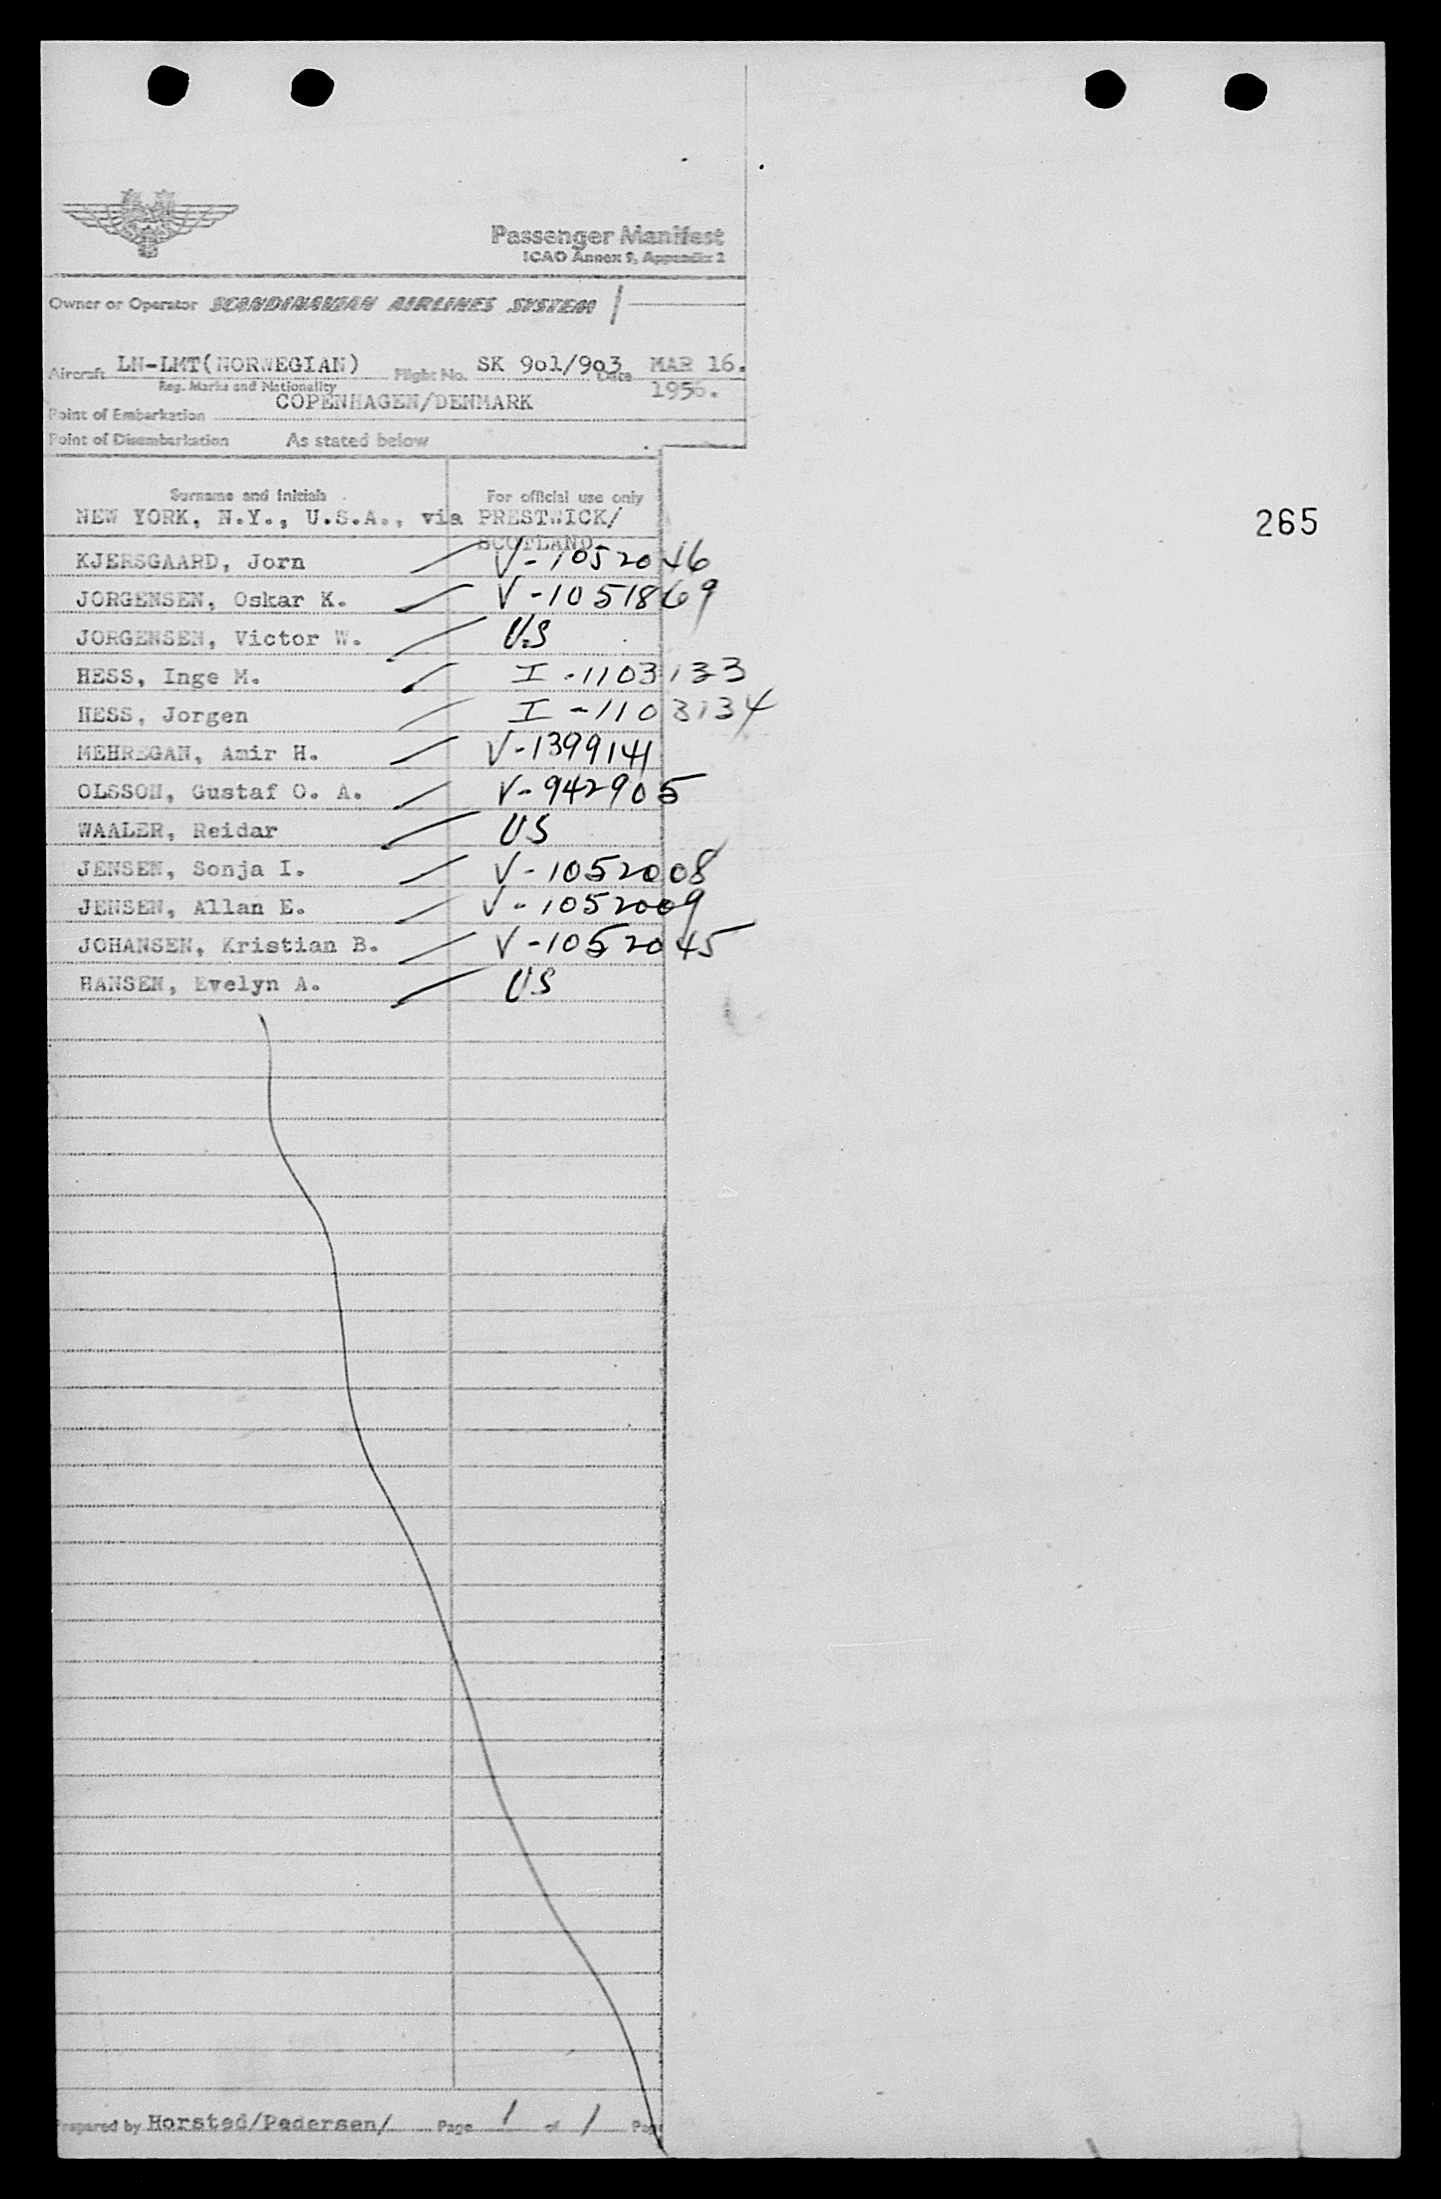 Passenger Manifest
ICAO Annex 9, Appendix 2
Owner or Operator SCANDINAVIAN AIRLINES SYSTEM
Aircraft LN-LMT(NORWEGIAN) Flight No. SK 901/903 Date MAR 16.
Reg. Marks and Nationality 1956.
Point of Embarkation COPENHAGEN/DENMARK
Point of Disembarkation As stated below
Surname and Initials For official use only
NEW YORK, N.Y., U.S.A., via PRESTWICK/
SCOTLAND
265
KJERSGAARD, Jorn V-1052046
JORGENSEN, Oskar K. V-1051869
JORGENSEN, Victor W. US
HESS, Inge M. I-1103133
HESS, Jorgen I-1103134
MEHREGAN, Amir H. V-1399141
OLSSON, Gustaf O. A. V-942905
WAALER, Reidar US
JENSEN, Sonja I. V-1052008
JENSEN, Allan E. V-1052009
JOHANSEN, Kristian B. V-1052045
HANSEN, Evelyn A. US
Prepared by Horsted/Pedersen/ Page 1 of 1 Page